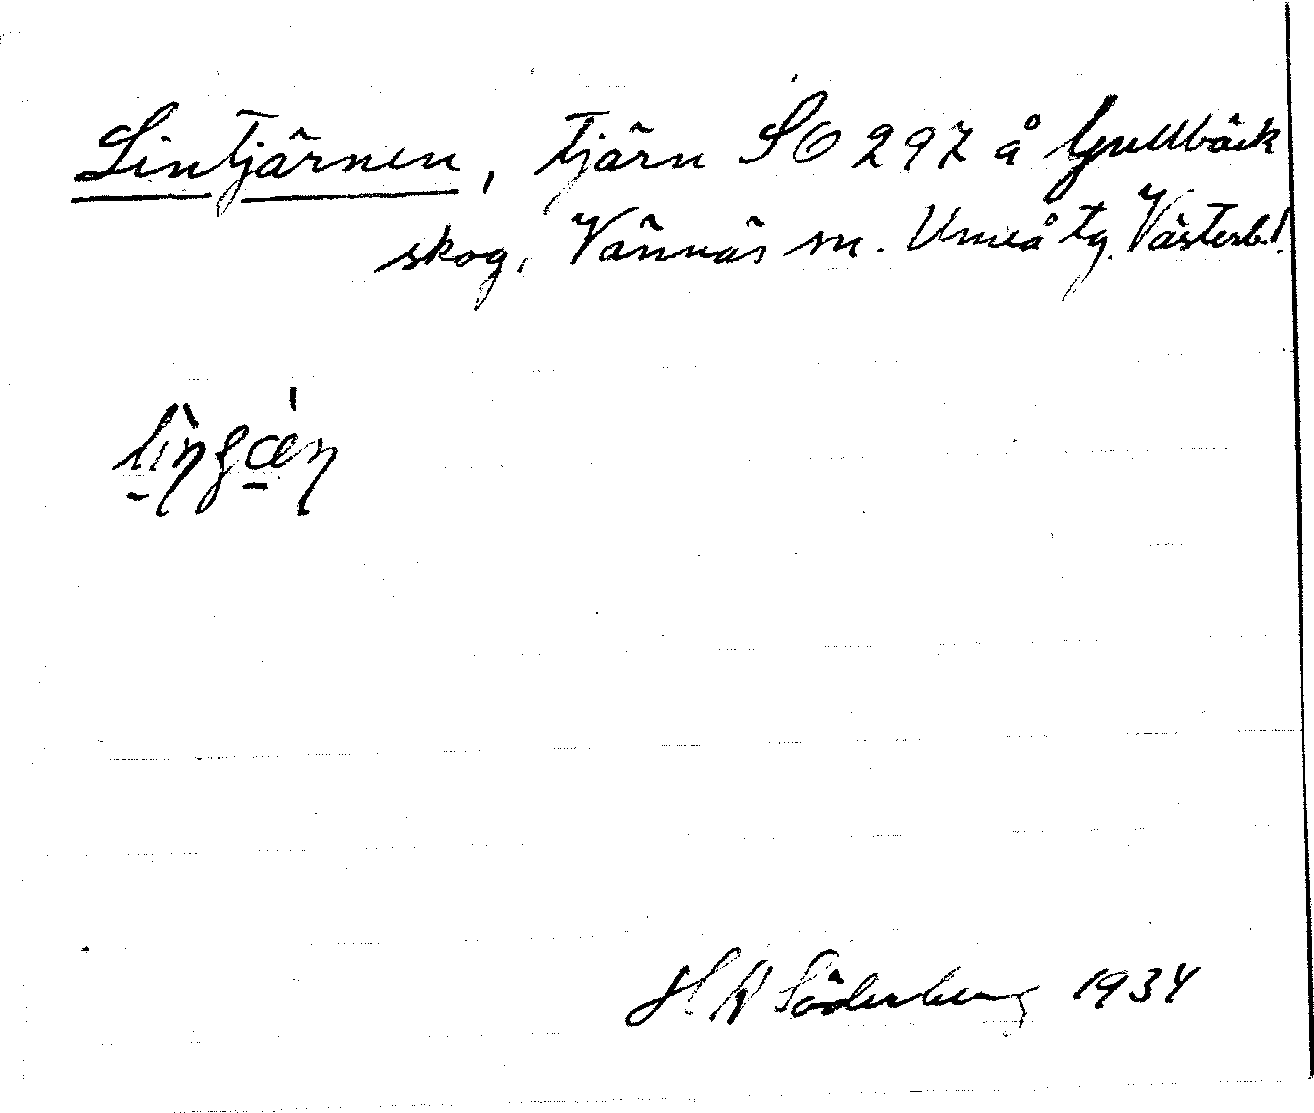 Lintjärnen, tjärn SO 297 å Gullbäck
skog, Vännäs sn. Umeå tg. Västerb. l.
Söderberg 1934